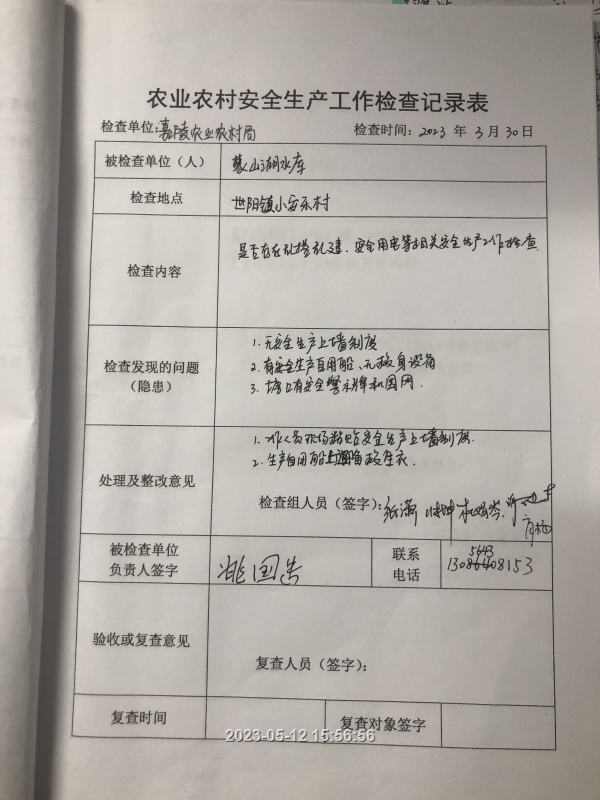 农业农村安全生产工作检查记录表
检查单位:嘉陵农业农村局 检查时间:2023 年 3 月 30 日
被检查单位（人） 山湖水库
检查地点 世阳镇小安乐村
检查内容 是否存在乱搭乱建、安全用电等相关安全生产工作检查
检查发现的问题
（隐患）
1. 无安全生产上墙制度
2. 有安全生产自用船、无救身设备
3. 塘口有安全警示牌和围网.
处理及整改意见
1. 工作人员现场粘贴安全生产上墙制度.
2. 生产自用船上配备救生衣.
检查组人员（签字）:
被检查单位
负责人签字
姚国
联系
电话
5443
153
验收或复查意见
复查人员（签字）:
复查时间 复查对象签字
2023-05-12 15:56:56